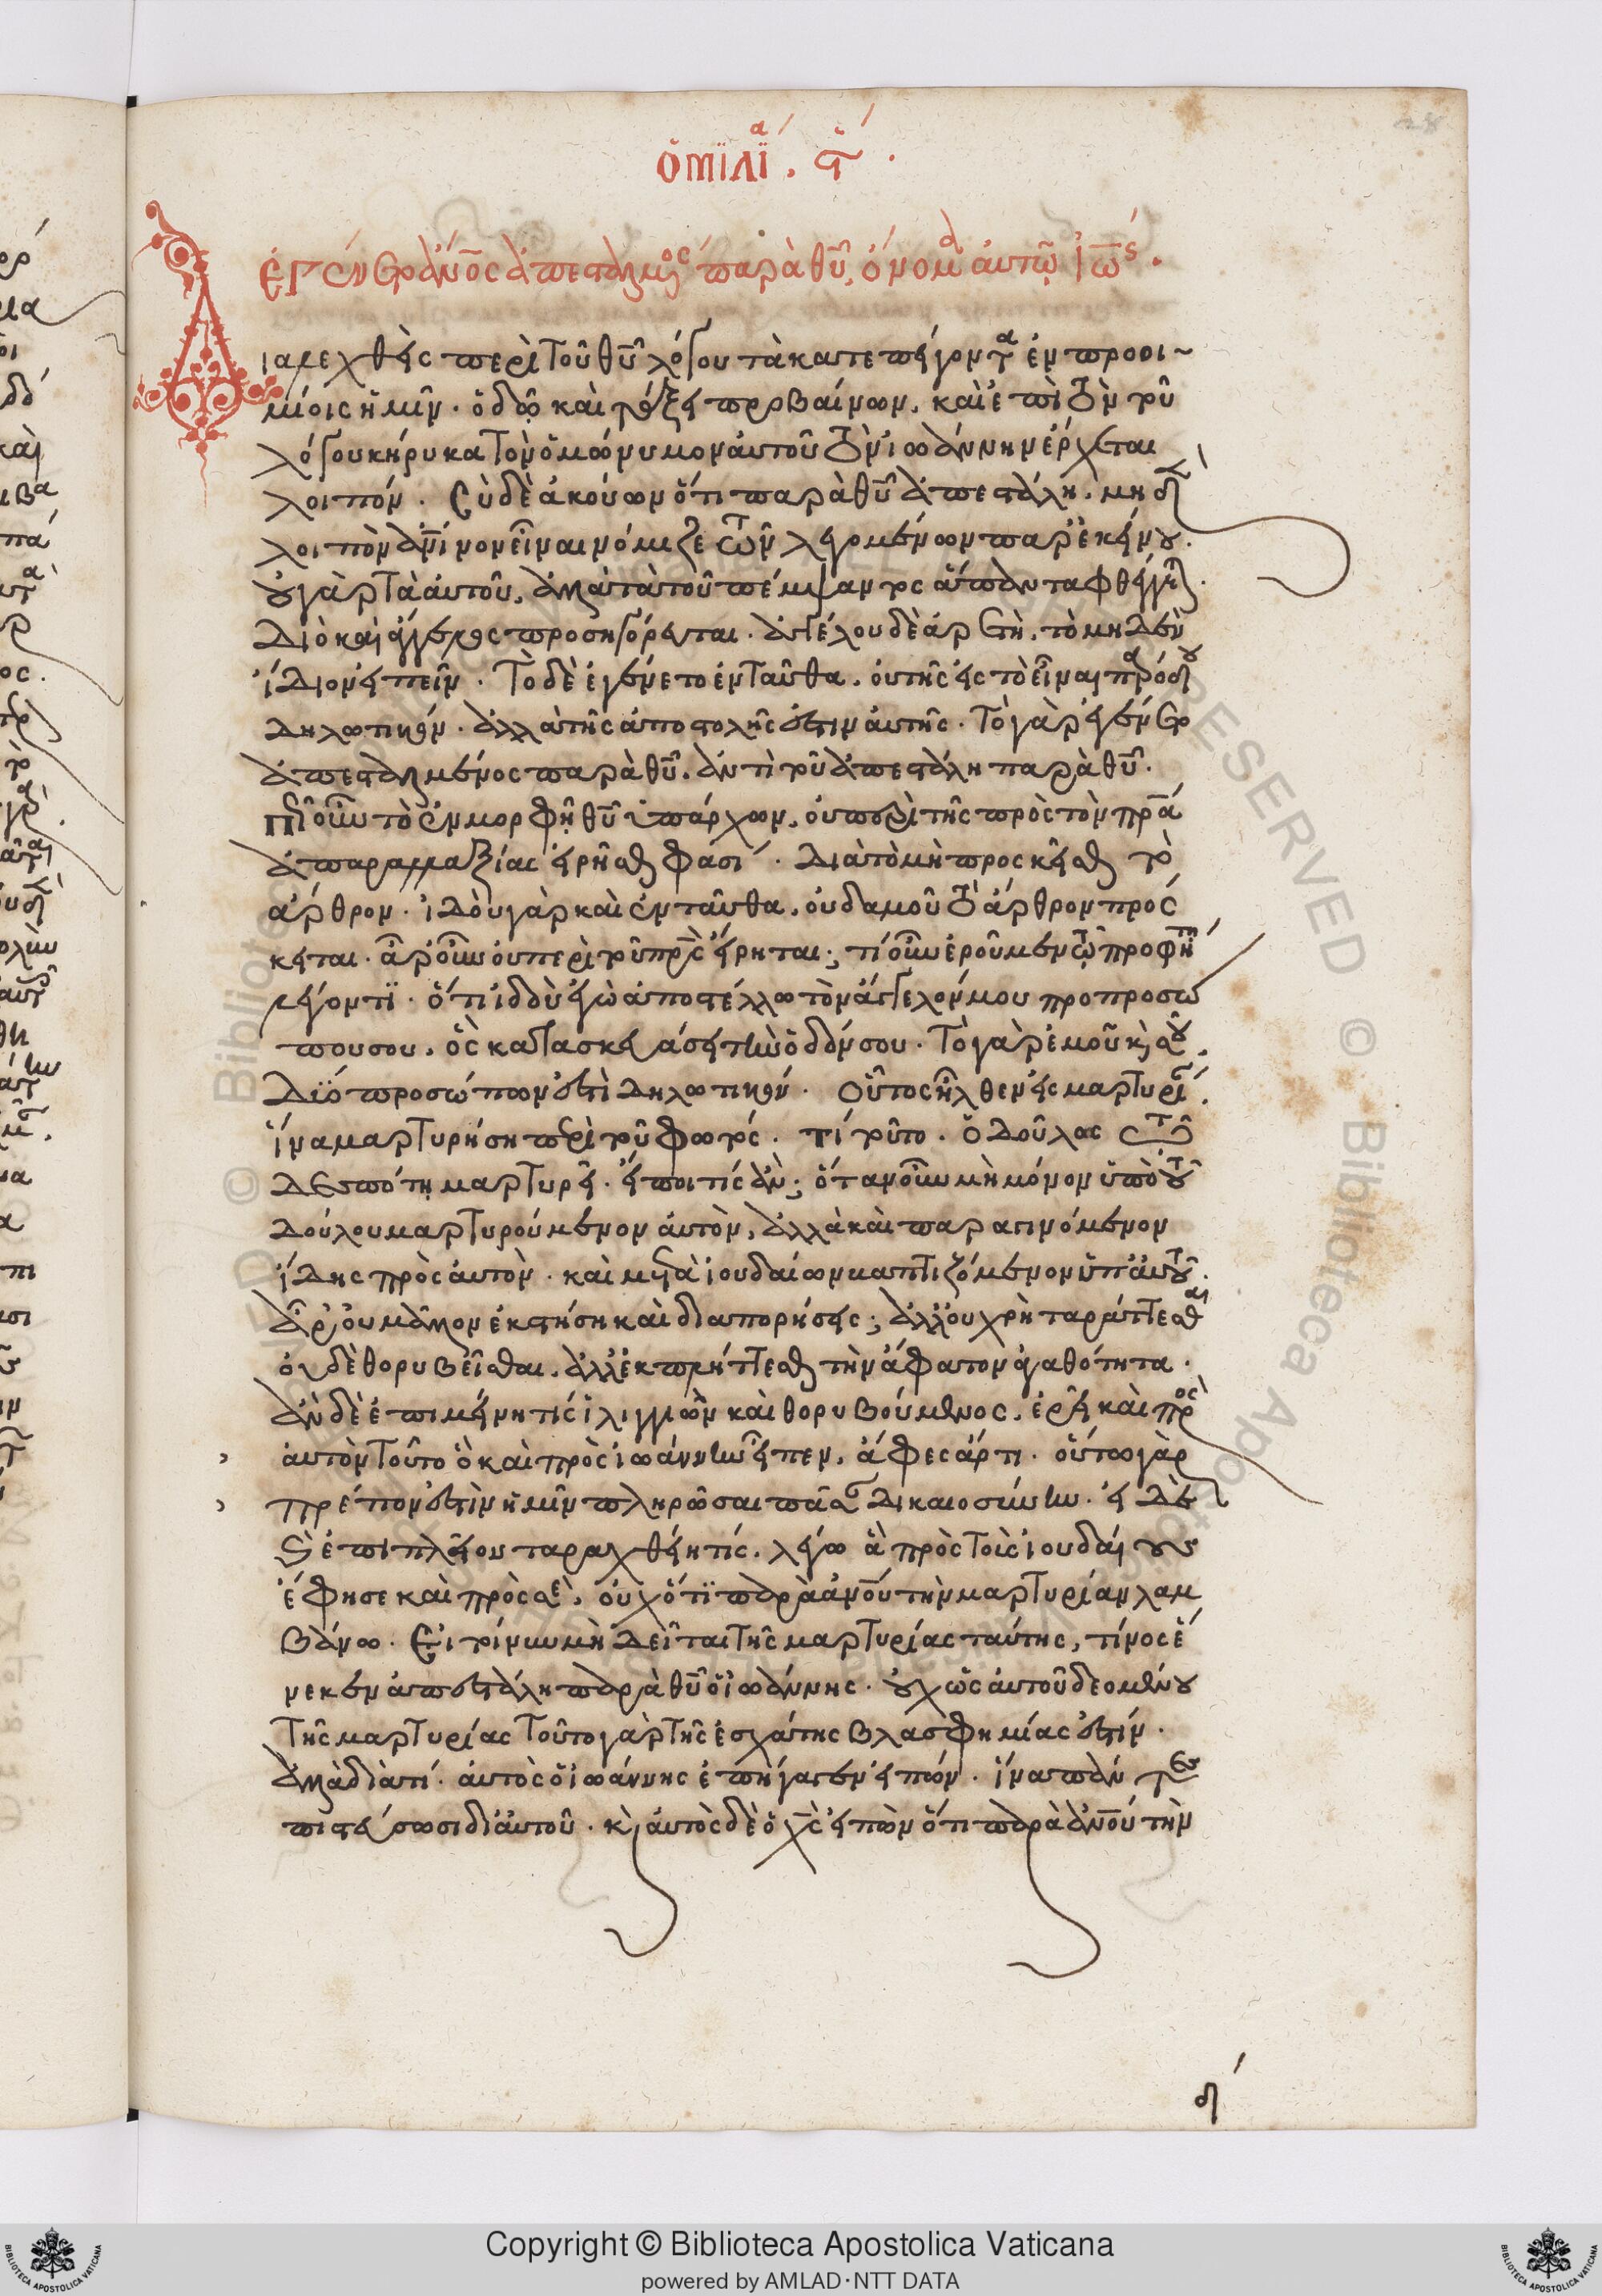 ὁμιλΐα. ϛ.
ἐγένετο ἄνος ἀπεσταλμένος παρὰ θυ, ὄνομα αὐτῶ ἰως.
Διαλεχθεὶς περὶ τοῦ θυ λόγου τὰ κατεπείγοντα ἐν προοι
μίοις ἡμῖν. ὁδῶ καὶ τάξει προβαίνων, καὶ ἐπὶ τὸν τοῦ
λόγου κήρυκα τὸν ὁμώνυμον αὐτοῦ τὸν ἰωάννην ἔρχεται
λοιπόν. Σὺ δὲ ἀκούων ὅτι παρὰ θυ ἀπεστάλη, μηδὲν
λοιπὸν ἀνινον εἶναι νόμιζε τῶν λεγομένων παρ' ἐκείνου.
οὐ γὰρ τὰ αὐτοῦ, ἀλλὰ τὰ τοῦ πέμψαντος ἅπαντα φθέγγεται.
Διὸ καὶ ἄγγελος προσηγόρευται. ἀγγέλου δὲ ἀρετὴ, τὸ μηδὲν
ἴδιον εἰπεῖν. Τὸ δὲ ἐγένετο ἐνταῦθα, οὐ τῆς εἰς τὸ εἶναι παρόδου
δηλωτικόν. ἀλλὰ τῆς ἀποστολῆς ἐστιν αὐτῆς. Τὸ γὰρ ἐγένετο
ἀπεσταλμένος παρὰ θυ, ἀντὶ τοῦ ἀπεστάλη παρὰ θυ.
πῶς οὖν τὸ ἐν μορφῆ θυ ὑπάρχων, οὐ περὶ τῆς πρὸς τὸν πρα
ἀπαραλλαξίας εἰρῆσθαι φασί. διὰ τὸ μὴ προσκεῖσθαι τὸ
ἄρθρον. ἰδοὺ γὰρ καὶ ἐνταῦθα, οὐδαμοῦ τὸ ἄρθρον πρόσ
κειται. ἆρ' οὖν οὐ περὶ τοῦ πρς εἴρηται; τί οὖν ἐροῦμεν τῶ προφήτη
λέγοντϊ. ὅτι ἰδοὺ ἐγὼ ἀποστέλλω τὸν ἄγγελόν μου προ προσώ
που σου, ὃς κατασκευάσει τὴν ὁδόν σου. Τὸ γὰρ ἐμοῦ κ σοῦ,
δύο προσώπων ἐστὶ δηλωτικόν. Οὗτος ἦλθεν εἰς μαρτυρίαν,
ἵνα μαρτυρήση περὶ τοῦ φωτός. τί τοῦτο. ὁ δοῦλος τῶ
δεσπότη μαρτυρεῖ. εἴποι τίς ἂν; ὅταν οὖν μὴ μόνον ὑπὸ τοῦ
δούλου μαρτυρούμενον αὐτὸν, ἀλλὰ καὶ παραγινόμενον
ἴδης πρὸς αὐτὸν. καὶ μετὰ ἰουδαίων βαπτιζόμενον ὑπ' αὐτοῦ.
ἆρ' οὐ μᾶλλον ἐκστήση καὶ διαπορήσεις; ἀλλ' οὐ χρὴ ταράττεσθαι
οὐδὲ θορυβεῖσθαι, ἀλλ' ἐκπλήττεσθαι τὴν ἄφατον ἀγαθότητα.
ἂν δὲ ἐπιμένη τίς ἰλιγγιῶν καὶ θορυβούμενος, ἐρεῖ καὶ πρὸς
αὐτὸν τοῦτο ὃ καὶ πρὸς ἰωάννην εἶπεν, ἄφες ἄρτι. οὕτω γὰρ
πρέπον ἐστὶν ἡμῖν πληρῶσαι πᾶσαν δικαιοσύνην. εἰ δὲ
ἐπιπλεῖον ταραχθείη τίς, λέγω ἃ πρὸς τοὺς ἰουδαίους
ἔφησε καὶ πρὸς σὲ, οὐχ ὅτϊ παρὰ ἀνου τὴν μαρτυρίαν λαμ
βάνω. Εἰ τοίνυν μὴ δεῖται τῆς μαρτυρίας ταύτης, τίνος ἕ
νεκεν ἀπεστάλη παρὰ θυ ὁ ἰωάννης. οὐχ ὡς αὐτοῦ δεομένου
τῆς μαρτυρίας τοῦτο γὰρ τῆς ἐσχάτης βλασφημίας ἐστίν.
ἀλλὰ διὰ τί. αὐτὸς ὁ ἰωάννης ἐπήγαγεν εἰπών. ἵνα πάντες
πιστεύσωσι δι' αὐτοῦ. κ αὐτὸς δὲ ὁ χς εἰπὼν ὅτι παρὰ ἀνου τὴν
δ